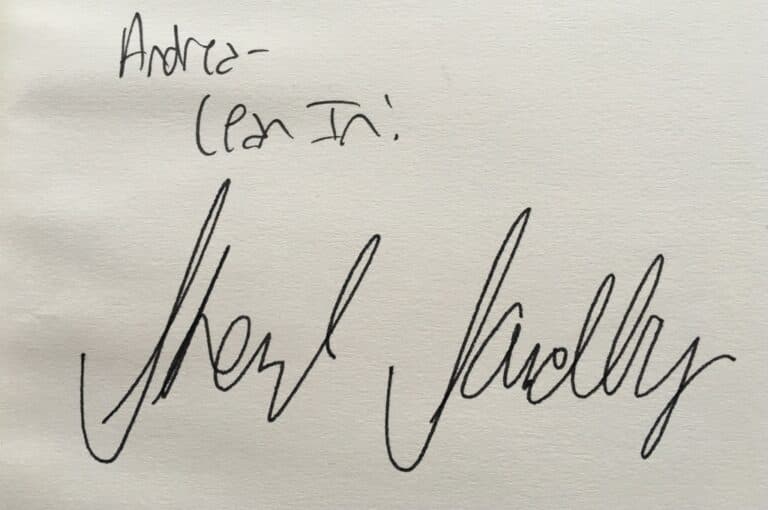 Andrea-
Lean In!
Sheryl Sandberg